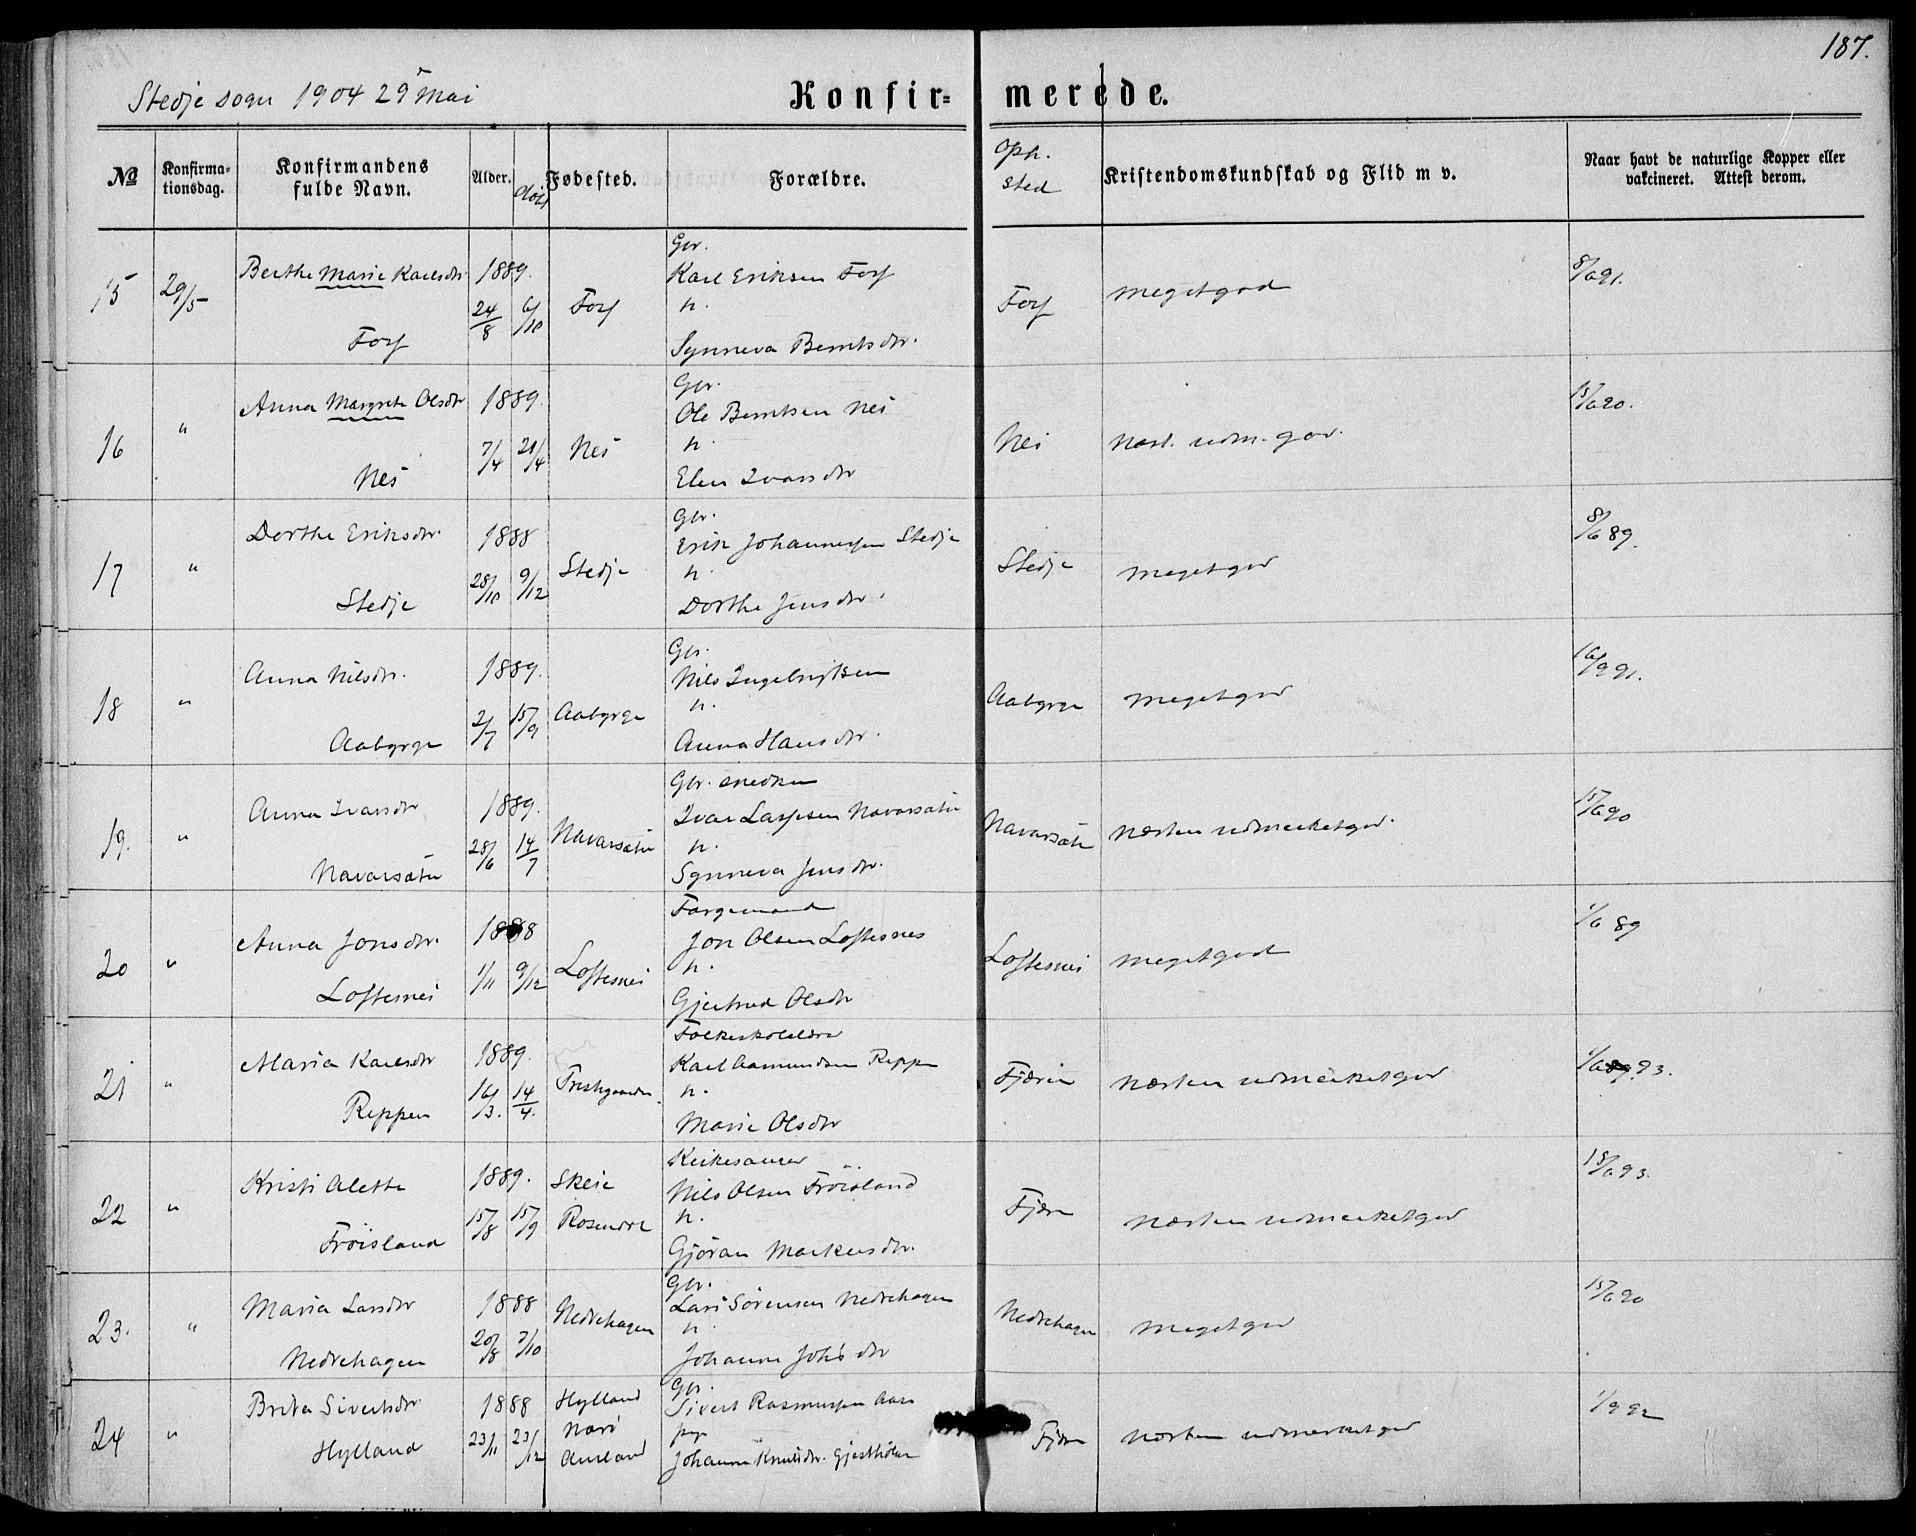 187.
Stedje sogn 1904 29 Mai
Konfirmerede.
No
Konfirmationsdag.
Konfirmandens fulde Navn.
Alder.
Fødested.
Forældre.
Oph. sted
Kristendomskundskab og Flid m v.
Naar havt de naturlige Kopper eller vakcineret. Attest derom.
15 29/5 Berthe Marie Karlsdtr. Foss 1889. 24/8 6/10 Foss
Gbr.
Karl Eriksen Foss
h.
Synneva Berntsdtr.
Foss megetgod 8/6 91.
16 " Anna Margrete Olsdtr Nes 1889. 7/4 21/4 Nes
Gbr.
Ole Berntsen Nes
h.
Elen Ivarsdtr
Nes næst. udm. god. 15/6 90.
17 " Dorthe Eriksdtr. Stedje 1888 28/10 9/12 Stedje
Gbr.
Erik Johannessen Stedje
h.
Dorthe Jensdtr.
Stedje megetgod 8/6 89.
18 " Anna Nilsdtr. Aabgrge 1889. 2/7 15/9 Aabgrge
Gbr.
Nils Ingebrigtsen
h.
Anna Hansdtr.
Aabgrge megetgod 16/9 91.
19. " Anna Ivarsdtr Navarsæter 1889. 28/6 14/7 Navarsæter
Gbr. snedker
Ivar Lassesen Navarsæter
h.
Synneva Jensdtr.
Navarsæter næsten udmerketgod. 15/6 90
20 " Anna Jonsdtr. Loftesnes 1888 1/11 9/12 Loftesnes
Færgemand
Jon Olsen Loftesnes
h.
Gjertrud Olsdtr
Loftesnes megetgod 1/6 89
21 " Maria Karlsdtr Reppen 1889. 16/3. 14/4.
Folkeskolelærer
Karl Aamundsen Reppen
h.
Marie Olsdtr
Fjæren næsten udmerketgod 93.
22 " Kristi Alette Fröisland 1889. 15/8 15/9 Skeie Rosendal
Kirkesanger
Nils Olsen Fröisland
h.
Gjöran Markusdtr.
Fjæren næsten udmerketgod 15/6 93.
23. " Maria Larsdtr Nedrehagen 1888 20/8 7/10 Nedrehagen
Gbr.
Lars Sörensen Nedrehagen
h.
Johanne Johs dtr
Nedrehagen megetgod 15/6 90
24 " Brita Sivertsdtr. Hylland 1888 23/11 23/12 Hylland Nærö Aurland
Gbr.
Sivert Rasmussen Aase
pige
Johanne Knutsdtr.
Fjæren næsten udmerketgod 1/9 92